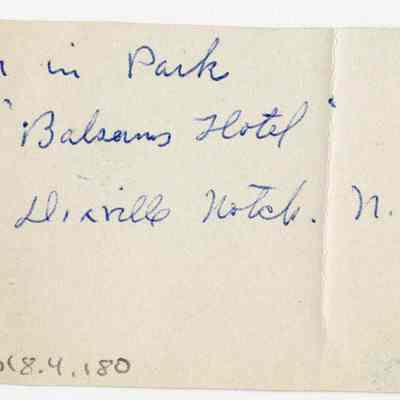 in Park
"Balsams Hotel"
Dixville Notch. N.
018.4.180